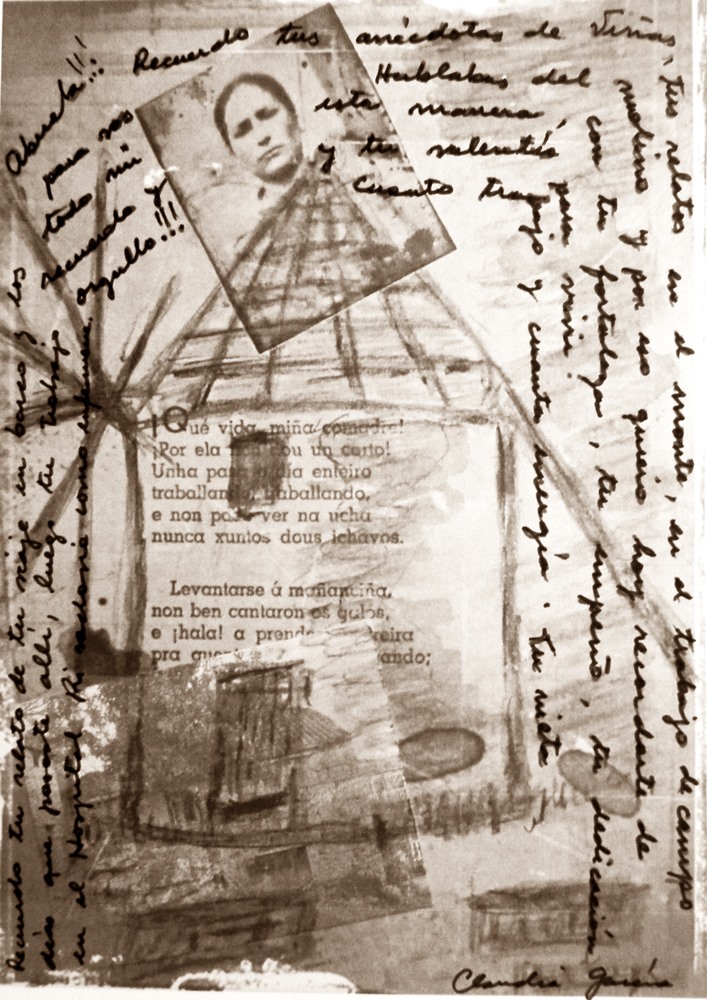 Abuela!!!
para vos
todo mi
recuerdo y
orgullo!!!
Recuerdo tus anécdotas de Viñas, tus relatos en el monte, en el trabajo de campo
Hablabas del molino y por eso quiero hoy recordarte de
esta manera, con tu fortaleza, tu empeño, tu dedicación
y tu valentía para vivir!
Cuanto trabajo y cuanta energía. Tu nieta
Recuerdo tu relato de tu viaje en barco y los
días que pasaste allí, luego tu trabajo
en el Hospital como enfermera.
¡Qué vida, miña comadre!
¡Por ela non dou un carto!
Unha pasa o día enteiro
traballando, traballando,
e non pode ver na ucha
nunca xuntos dous ichavos.
Levantarse á mañanciña,
non ben cantaron os galos,
e ¡hala! a prende
pra
Claudia García